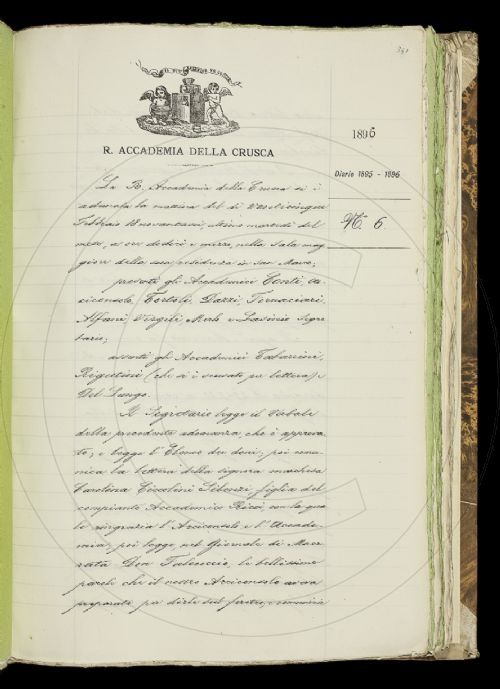 391
1896
R. ACCADEMIA DELLA CRUSCA
Diario 1895 - 1896
N.° 6
La R. Accademia della Crusca si è
adunata la mattina del dì Venticinque
Febbraio 18 novantasei, ultimo martedì del
mese, a ore dodici e mezzo, nella Sala mag
giore della sua residenza in San Marco;
presenti gli Accademici Conti, Ar-
ciconsolo, Tortoli, Dazzi, Tornaciari,
Alfani, Virgili, Merh e Lasinio Segre
tario;
assenti gli Accademici Tabarrini,
Rigutini (che si è scusato per lettera) e
Del Lungo.
Il Segretario legge il Verbale
della precedente adunanza, che è approva-
to; e legge l'Elenco dei doni; poi comu-
nica la lettera della signora marchesa
Carolina Ciccolini Silenzi figlia del
compianto Accademico Ricci, con la qua
le ringrazia l'Arciconsolo e l'Accade-
mia; poi legge, nel Giornale di Mace
rata Don Falcuccio, le bellissime
parole che il nostro Arciconsolo aveva
preparate per dirle sul feretro, e comunica